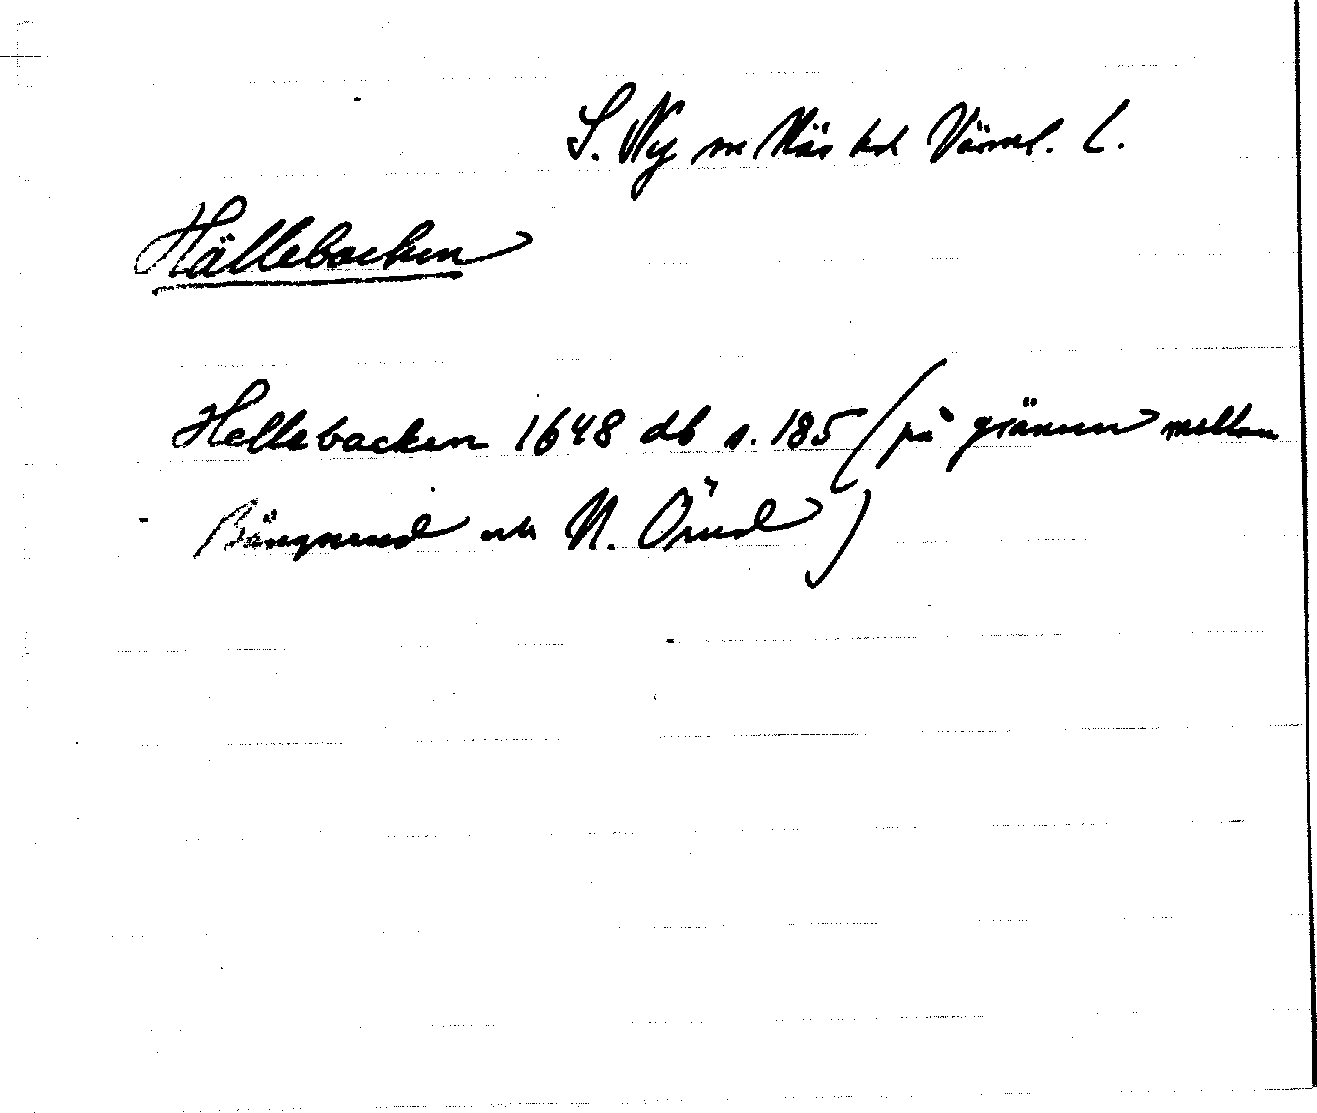 S. Ny sn Näs hd Värml. L.
Hällebacken
Hellebacken 1648 db s. 185 (på gränsen mellan
och N. Örud)